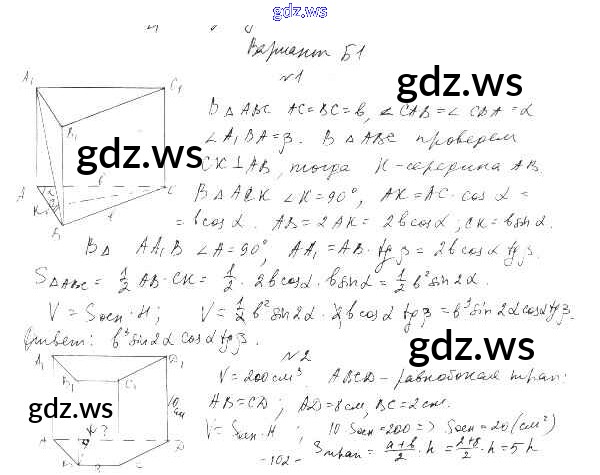 gdz.ws
Вариант Б1
№1
gdz.ws
В △ABC AC=BC=b, ∠CAB=∠CBA=α
∠A₁BA=β. В △ABC проведем
gdz.ws
CK⊥AB, тогда K-середина AB.
В △ACK ∠K=90°, AK=AC·cosα=
=bcosα. AB=2AK=2bcosα; CK=bsinα.
В △ AA₁B ∠A=90°, AA₁=AB·tgβ=2bcosα tgβ.
S△ABC = 1/2 AB·CK = 1/2 · 2bcosα·bsinα = 1/2 b²sin2α.
V=Sосн·H; V=1/2 b²sin2α·2bcosα tgβ=b³sin2αcosαtgβ.
Ответ: b³sin2α cosα tgβ.
gdz.ws
№2
V=200см³. ABCD-равнобокая трап.
AB=CD; AD=8см, BC=2см.
gdz.ws
V=Sосн·H; 10Sосн=200 => Sосн=20(см²)
Sтрап=(a+b)/2·h=(2+8)/2·h=5h
-102-
A₁
C₁
B₁
A
C
K
B
b
b
A₁
D₁
B₁
C₁
10
см
A
D
K